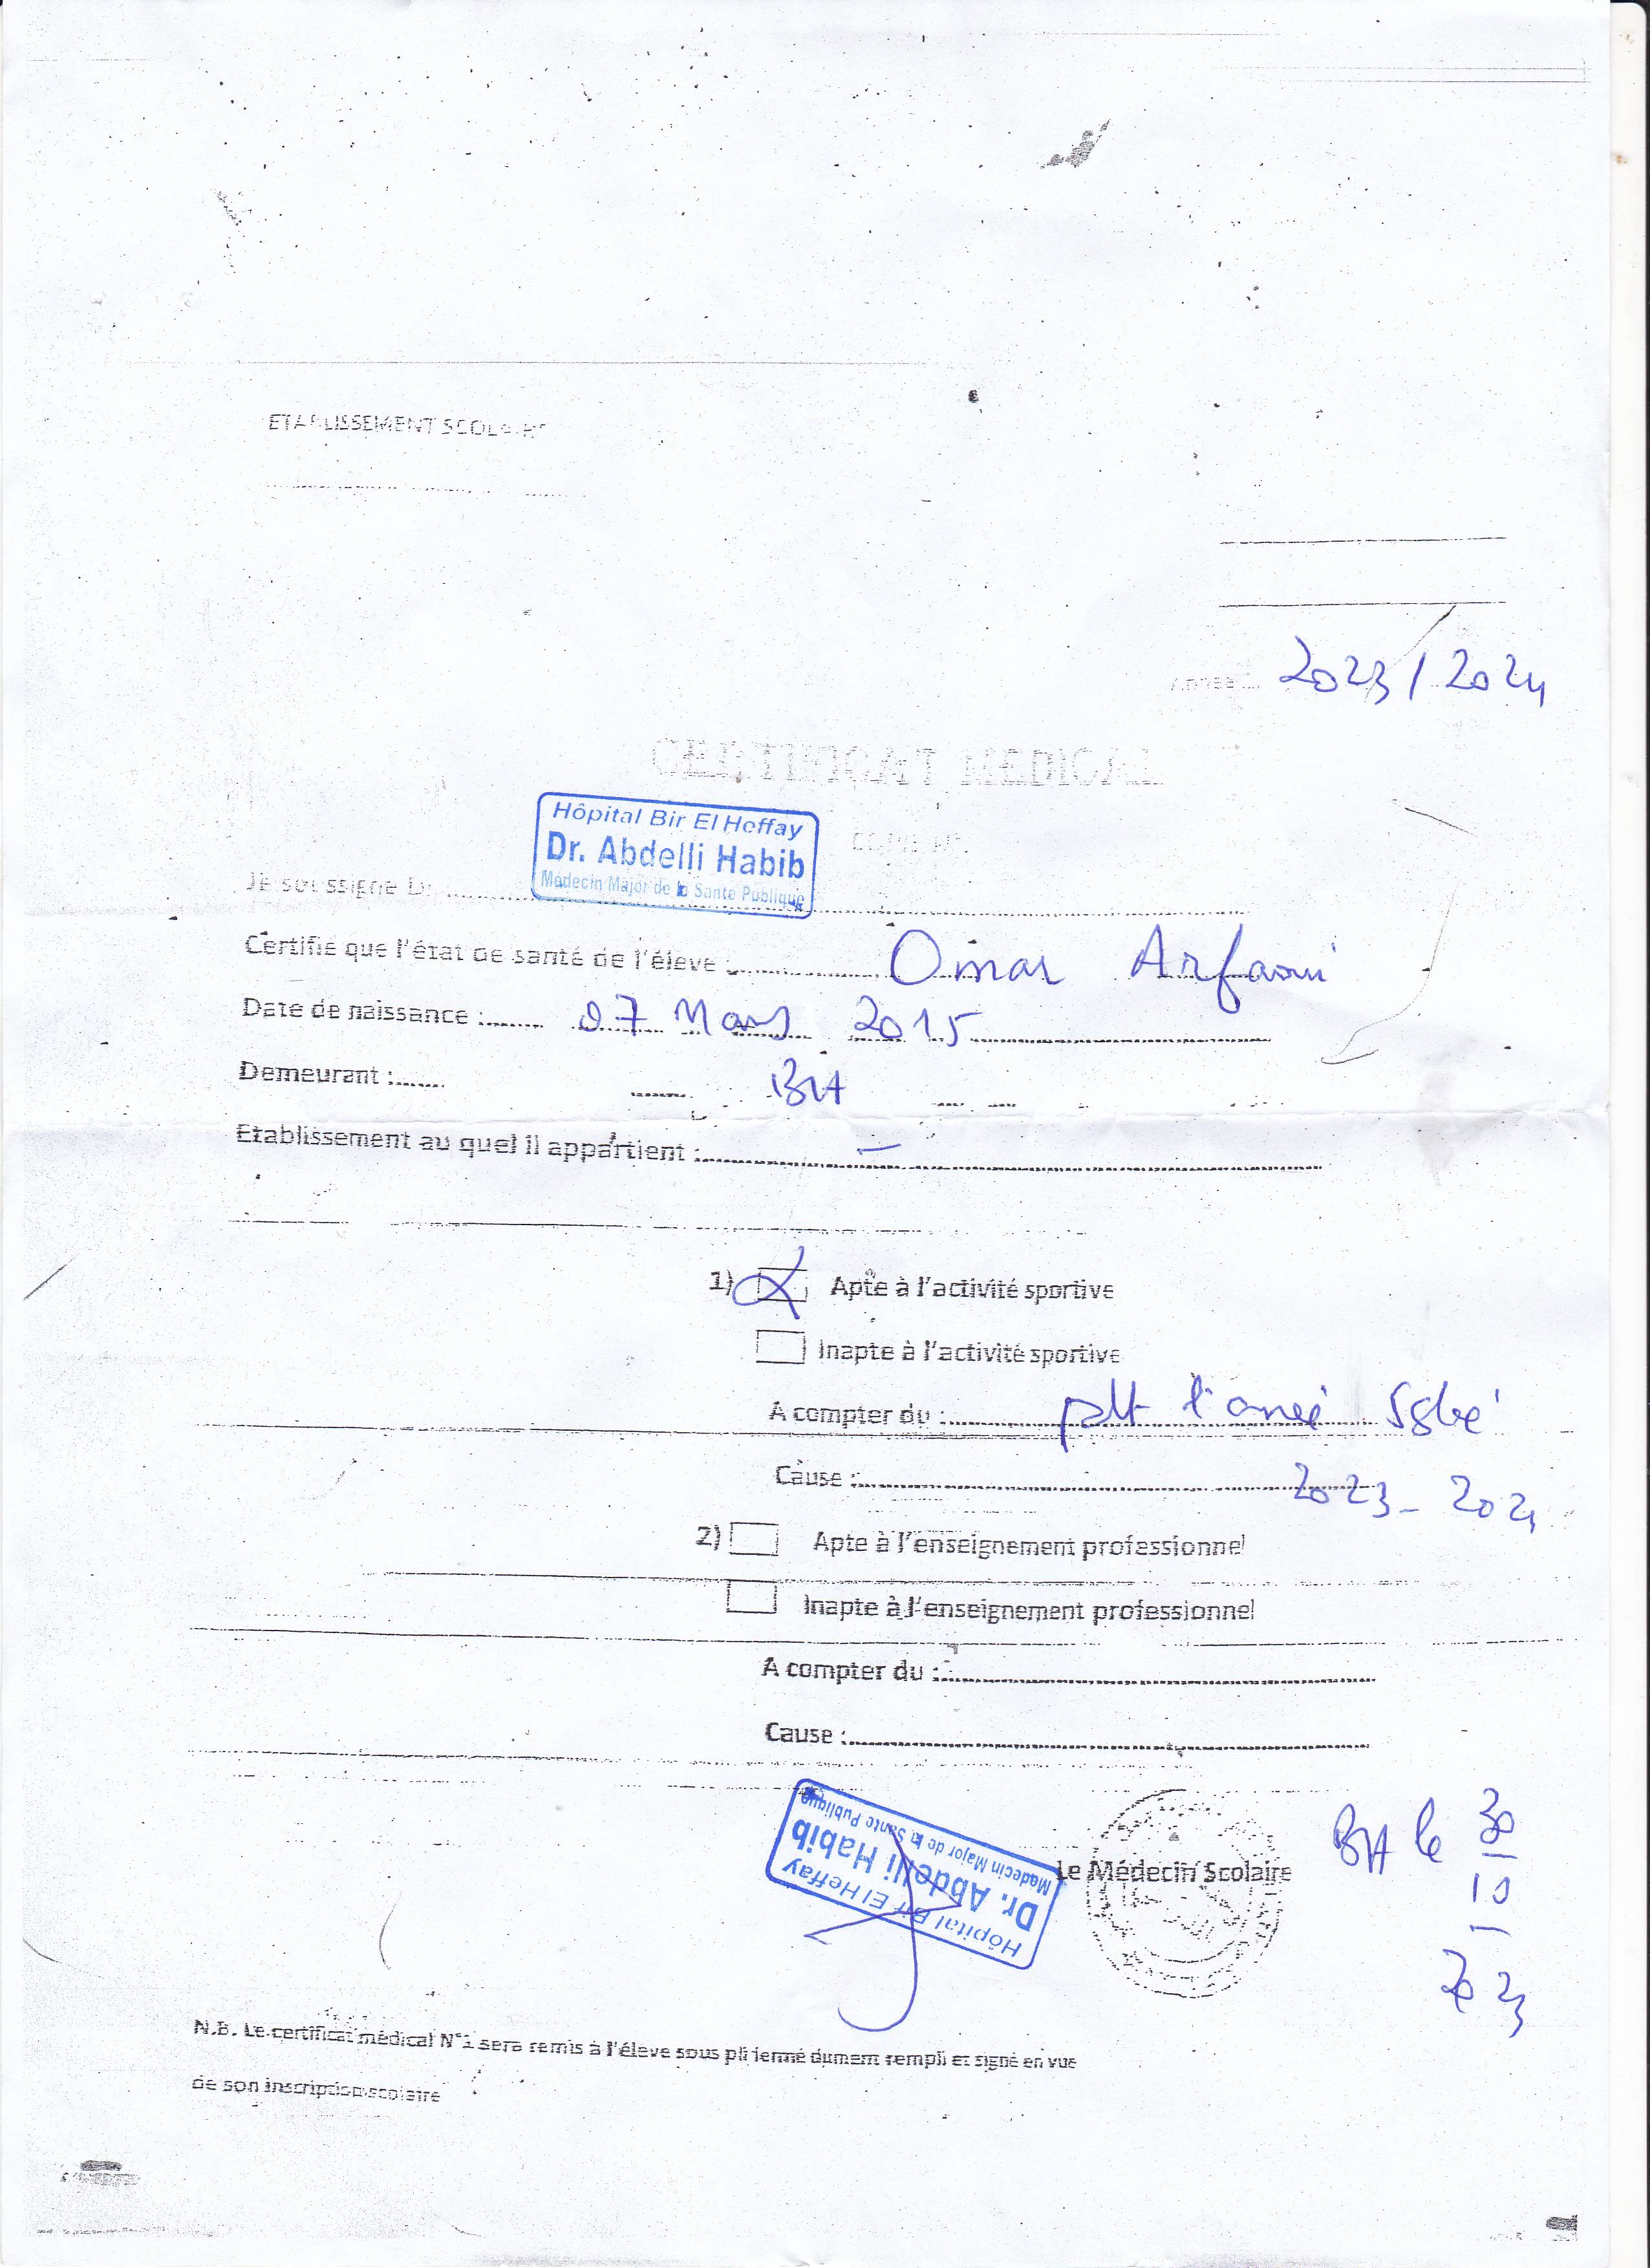 ETABLISSEMENT SCOLAIRE
Année 2023/2024
CERTIFICAT MEDICAL
Hôpital Bir El Heffay
Dr. Abdelli Habib
Médecin Major de la Sante Publique
Je soussigné Dr
Certifie que l'état de santé de l'élève : Omar Arfaoui
Date de naissance : 07 Mars 2015
Demeurant : BH
Etablissement au quel il appartient : —
1) Apte à l'activité sportive
Inapte à l'activité sportive
A compter du : pdt l'année
Cause : 2023-2024
2) Apte à l'enseignement professionnel
Inapte à l'enseignement professionnel
A compter du :
Cause :
Hôpital Bir El Heffay
Dr. Abdelli Habib
Médecin Major de la Sante Publique
Le Médecin Scolaire
BH le 30
10
2023
N.B. Le certificat médical N°1 sera remis à l'élève sous pli fermé dument rempli et signé en vue
de son inscription scolaire